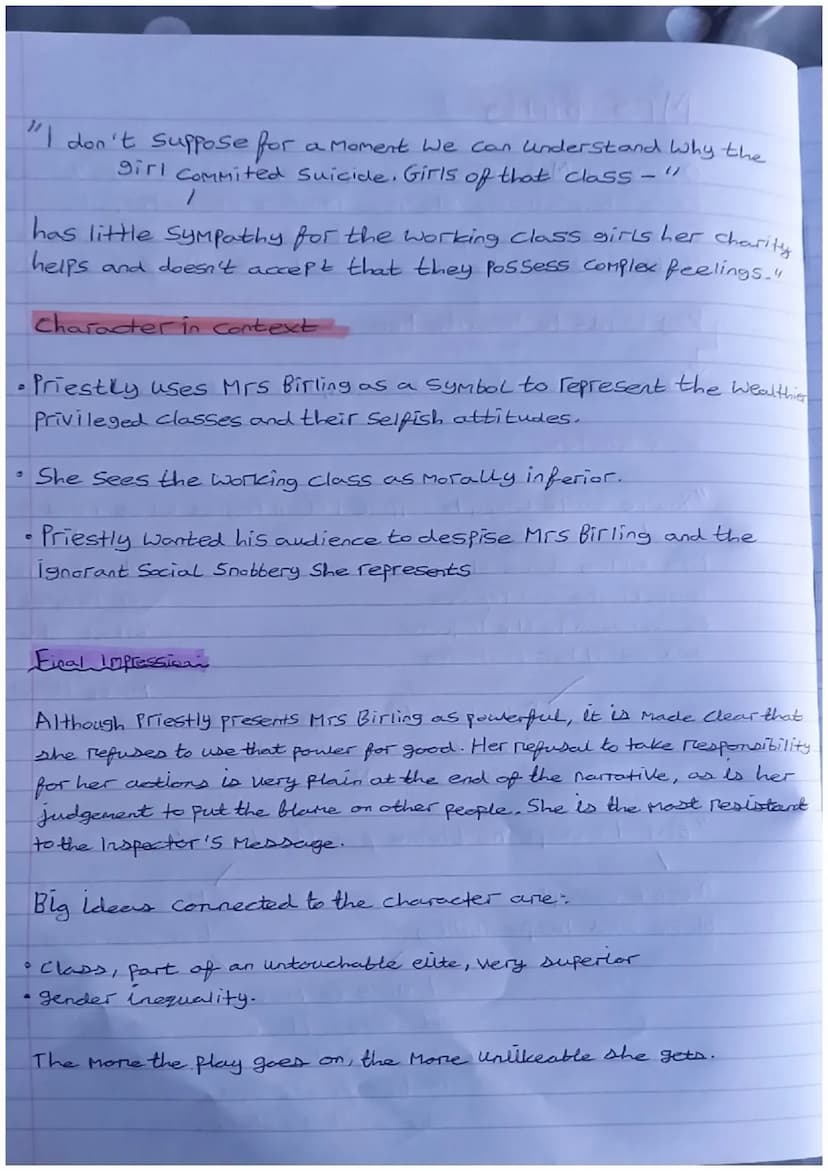 "I don't suppose for a moment we can understand why the
girl commited suicide. Girls of that class - "
has little sympathy for the working class girls her charity
helps and doesn't accept that they possess complex feelings."
Character in context
• Priestly uses Mrs Birling as a symbol to represent the wealthier
privileged classes and their selfish attitudes.
• She sees the working class as morally inferior.
• Priestly wanted his audience to despise Mrs Birling and the
ignorant social snobbery she represents
Final Impression:
Although Priestly presents Mrs Birling as powerful, it is made clear that
she refuses to use that power for good. Her refusal to take responsibility
for her actions is very plain at the end of the narrative, as is her
judgement to put the blame on other people. She is the most resistant
to the Inspector's message.
Big ideas connected to the character are:
• Class, part of an untouchable elite, very superior
• gender inequality.
The more the play goes on, the more unlikeable she gets.